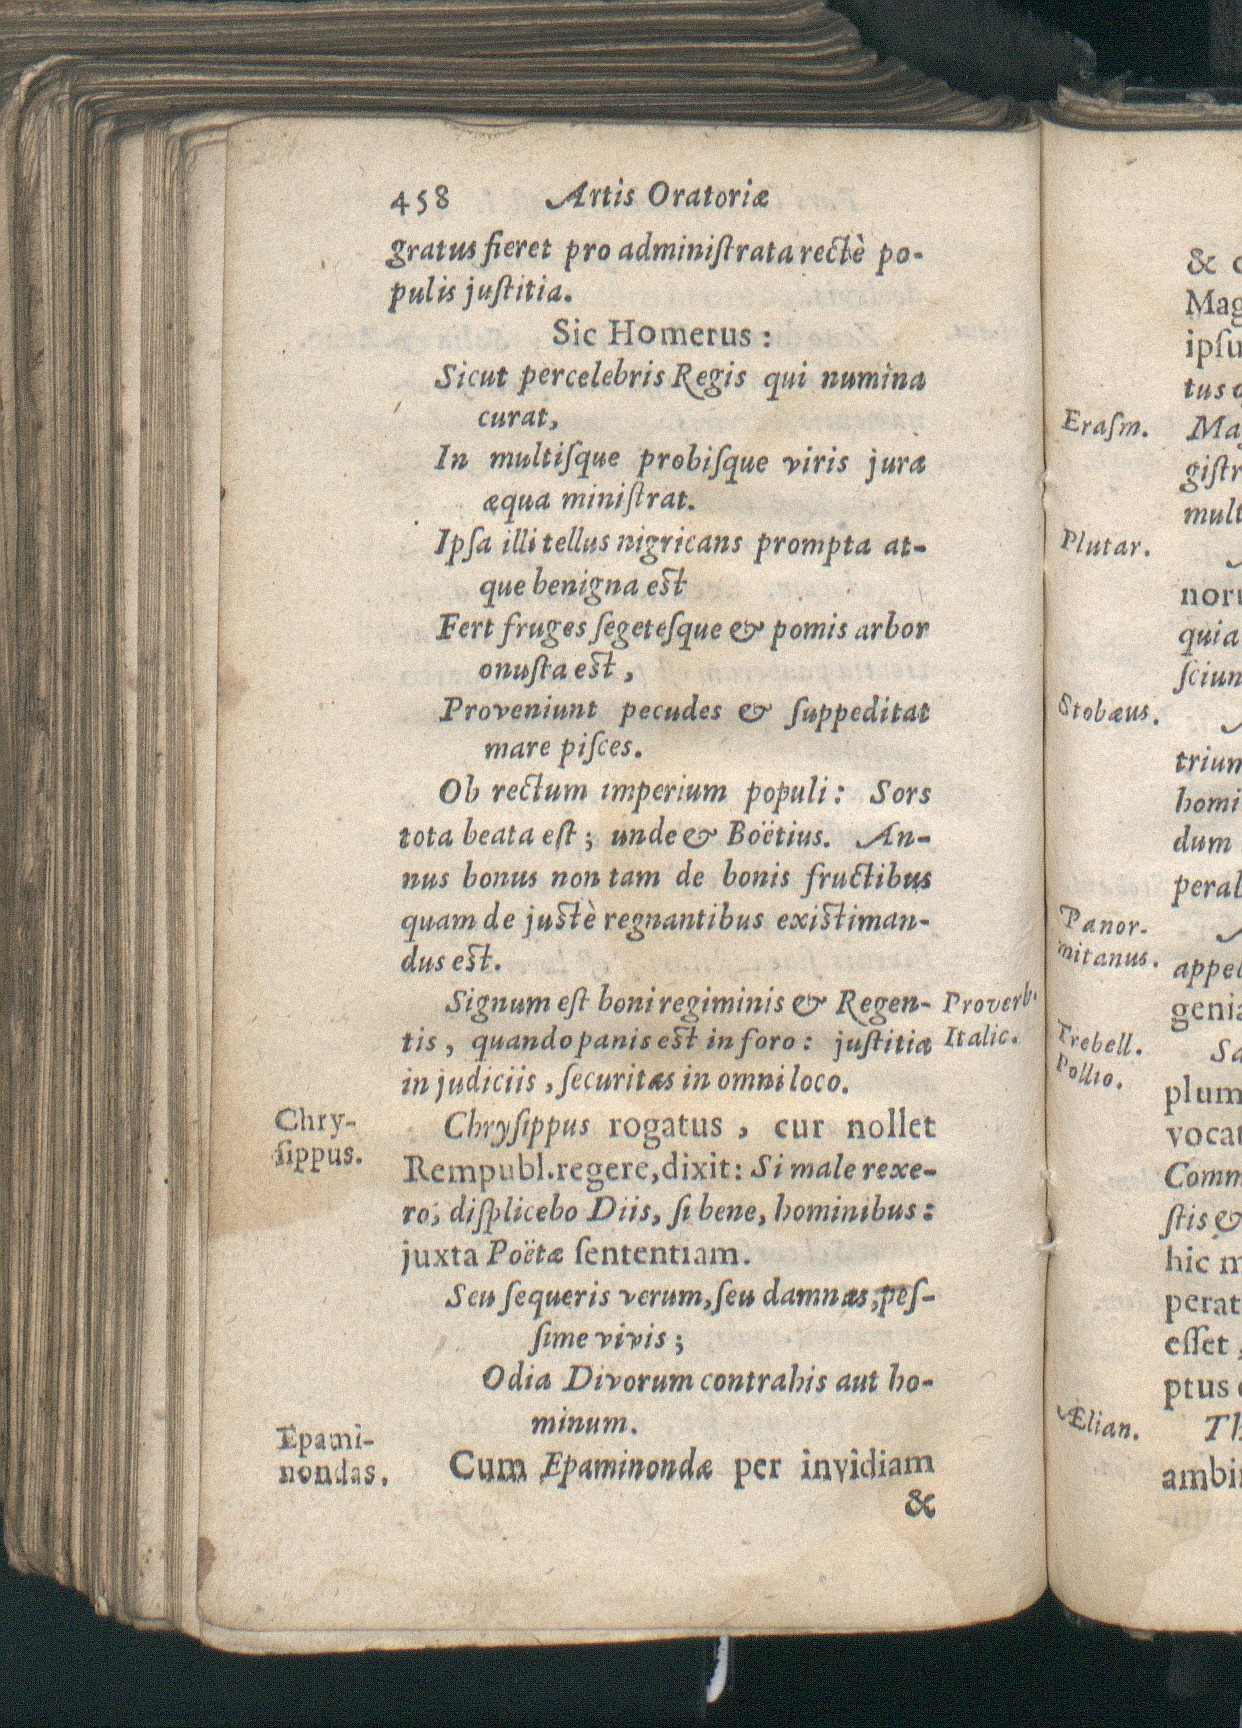 458 Artis Oratoriæ
gratus fieret pro administrata rectè po-
pulis justitia.
Sic Homerus:
Sicut percelebris Regis qui numina
curat,
In multisque probisque viris jura
æqua ministrat.
Ipsa illi tellus nigricans prompta at-
que benigna est
Fert fruges segetesque & pomis arbor
onusta est,
Proveniunt pecudes & suppeditat
mare pisces.
Ob rectum imperium populi: Sors
tota beata est; unde & Boëtius. An-
nus bonus non tam de bonis fructibus
quam de justè regnantibus existiman-
dus est.
Signum est boni regiminis & Regen-
tis, quando panis est in foro: justitia
in judiciis, securitas in omni loco.
Proverb.
Italic.
Chry-
sippus.
Chrysippus rogatus, cur nollet
Rempubl. regere, dixit: Si male rexe-
ro, displicebo Diis, si bene, hominibus:
juxta Poëtæ sententiam.
Seu sequeris verum, seu damnas, pes-
sime vivis;
Odia Divorum contrahis aut ho-
minum.
Epami-
nondas.
Cum Epaminondæ per invidiam
&
&
Mag
ipsu
tus
Erasm.
Ma
gistr
mult
Plutar.
noru
quia
sciun
Stobæus.
trium
homi
dum
peral
Panor-
mitanus.
appel
genia
Trebell.
Pollio.
Sa
plum
vocat
Comm
stis &
hic m
perat
esset,
ptus
Ælian.
Th
ambi